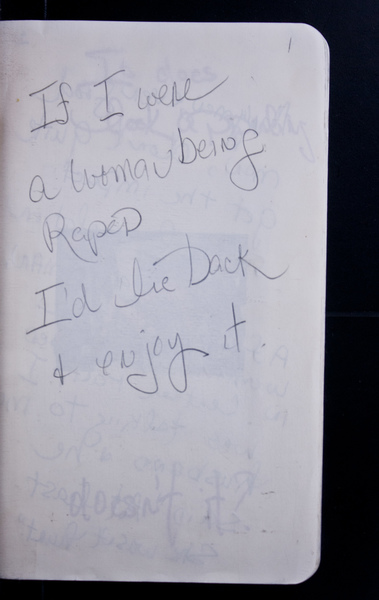 1
If I were
a woman being
Raped
I'd lie back
+ enjoy it.